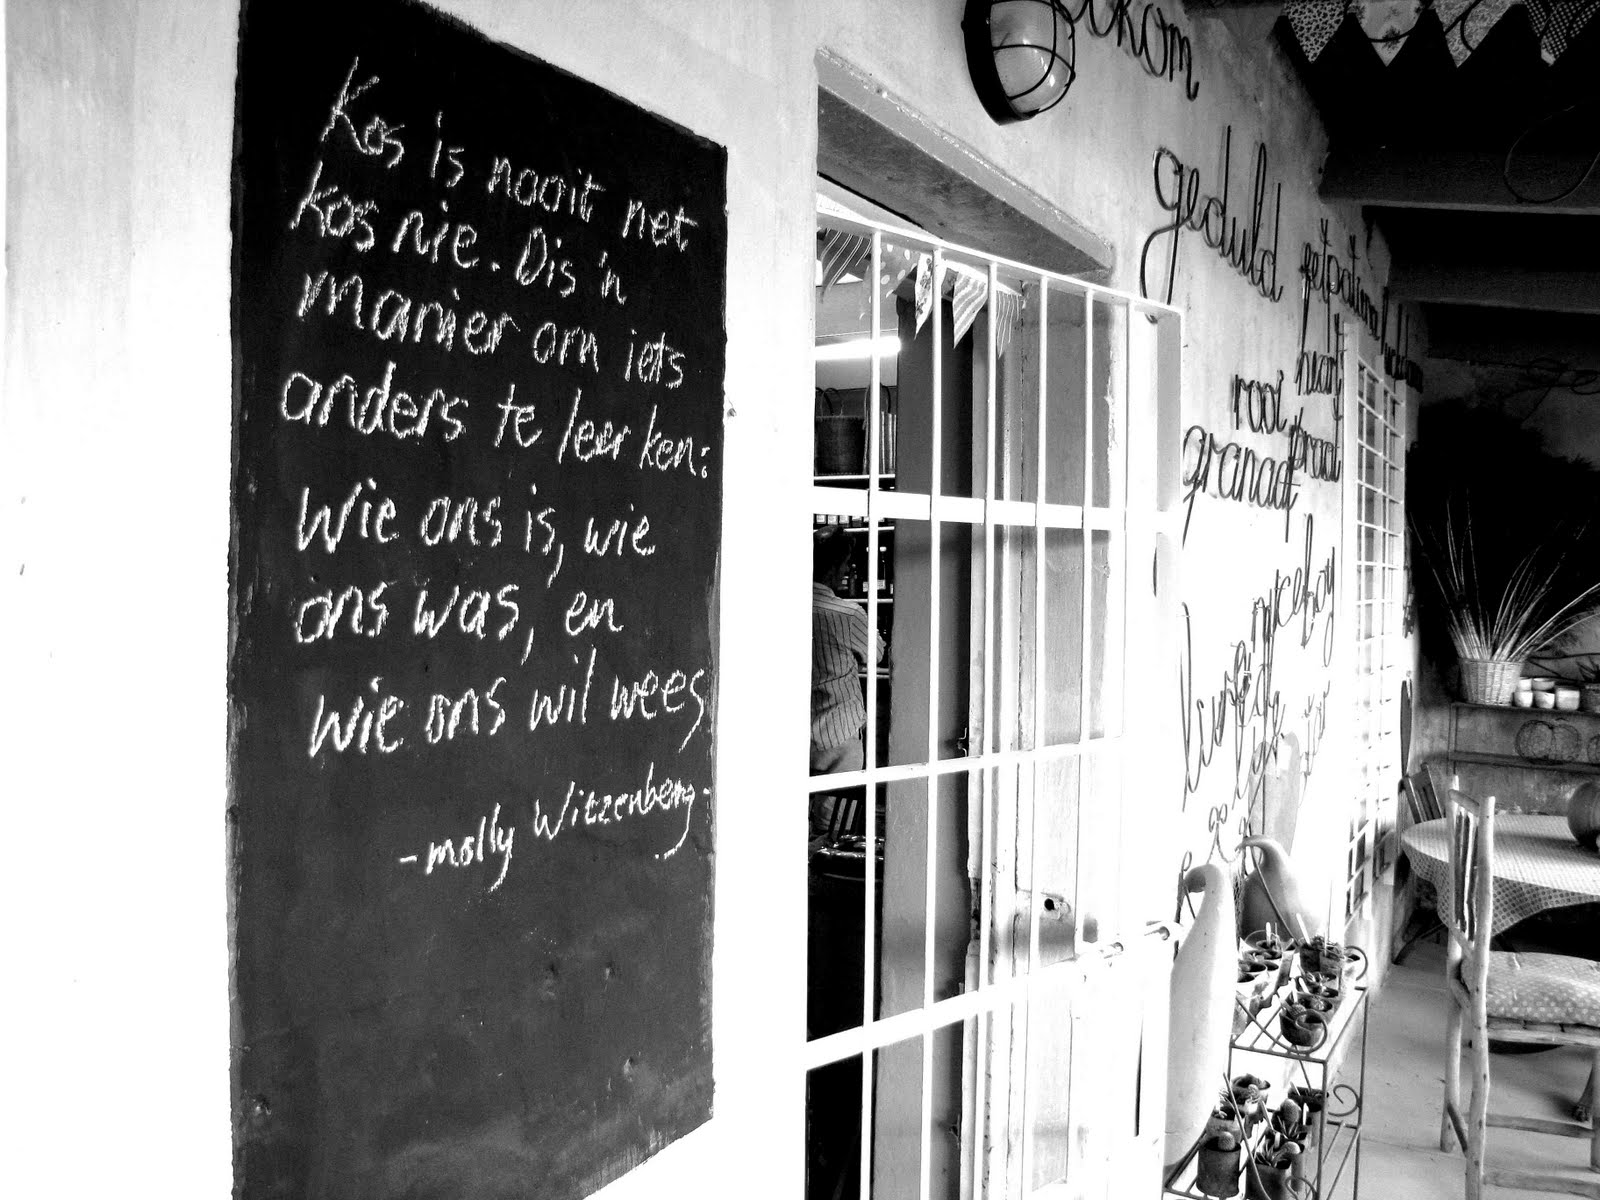 Kos is nooit net
kos nie. Dis 'n
manier om iets
anders te leer ken:
Wie ons is, wie
ons was, en
wie ons wil wees
-molly Witzenberg-
geduld
hart
rooi
praat
granaat